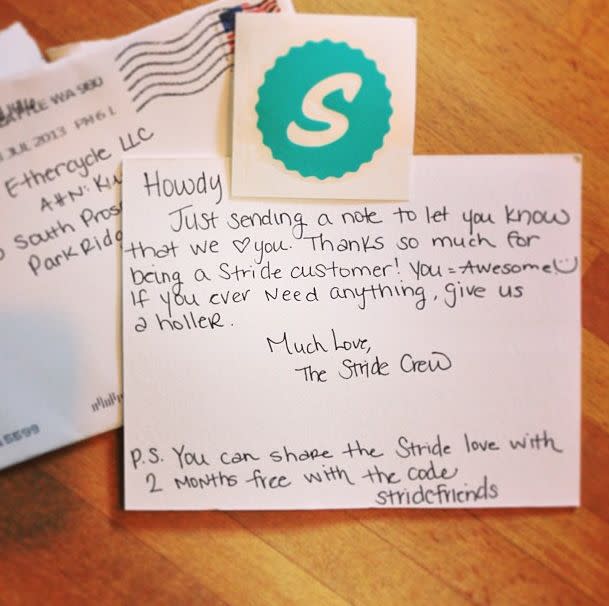 WA 980
JUL 2013 PM 6 L
Ethercycle LLC
South
Park Ridg
S
Howdy
Just sending a note to let you know
that we ♡ you. Thanks so much for
being a Stride customer! You = Awesome!
If you ever need anything, give us
a holler.
Much Love,
The Stride Crew
P.S. You can share the Stride love with
2 months free with the code
stridefriends